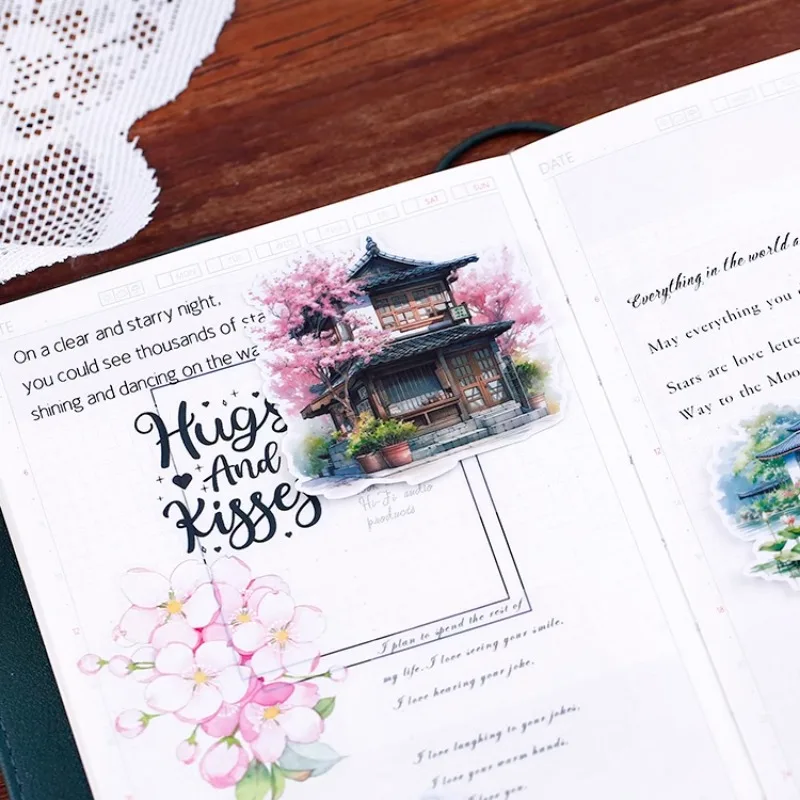 SAT
SUN
DATE
On a clear and starry night,
you could see thousands of
shining and dancing on the
Hugs
And
Kisses
Hi-Fi audio
products
I plan to spend the rest of
my life. I love seeing your smile,
I love hearing your joke.
I love laughing to your jokes,
I love your warm hands.
I love you.
Everything in the world
May everything you
Stars are love
Way to the